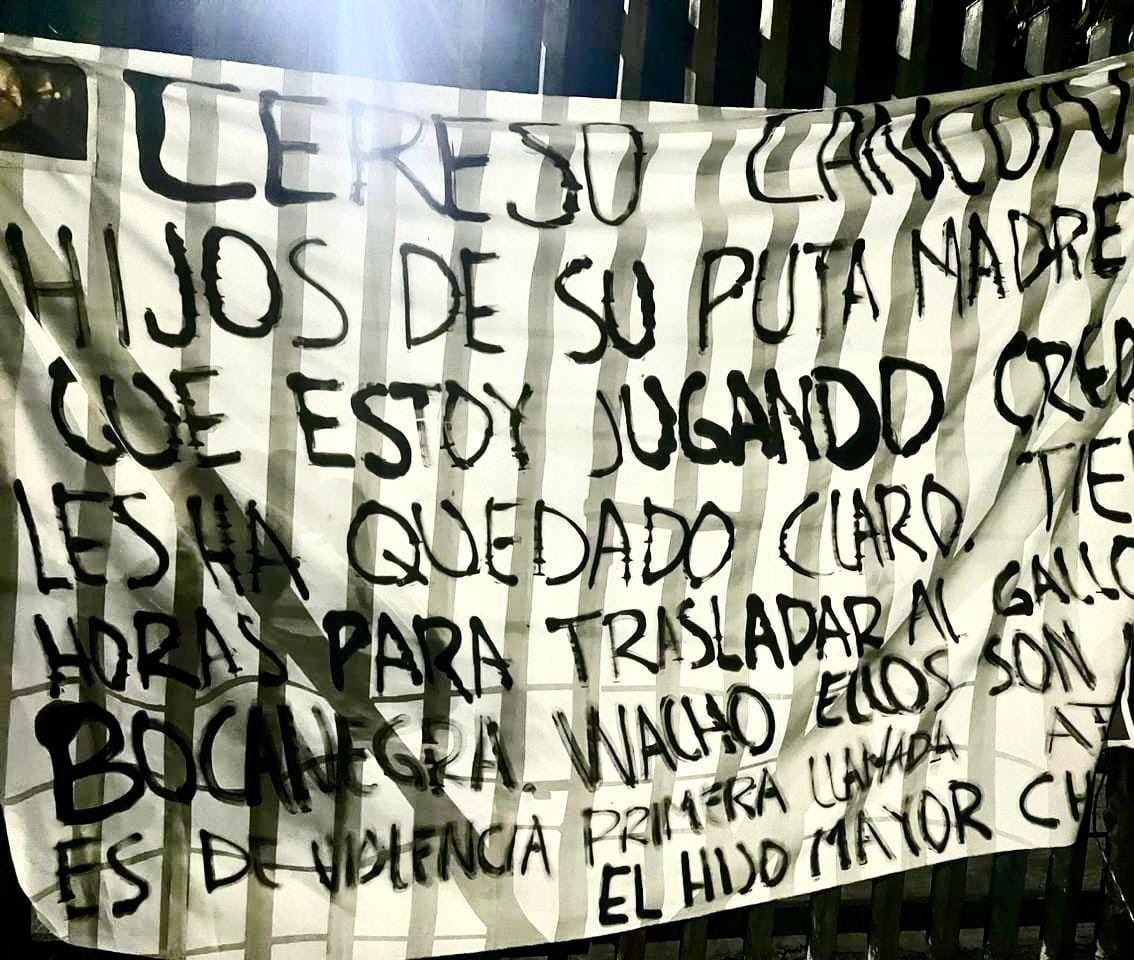 CERESO CANCUN
HIJOS DE SU PUTA MADRE
QUE ESTOY JUGANDO CREE
LES HA QUEDADO CLARO. TIE
HORAS PARA TRASLADAR AL GALLO
BOCANEGRA. WACHO ELLOS SON
ES DE VIOLENCIA PRIMERA LLAMADA AT
EL HIJO MAYOR CH